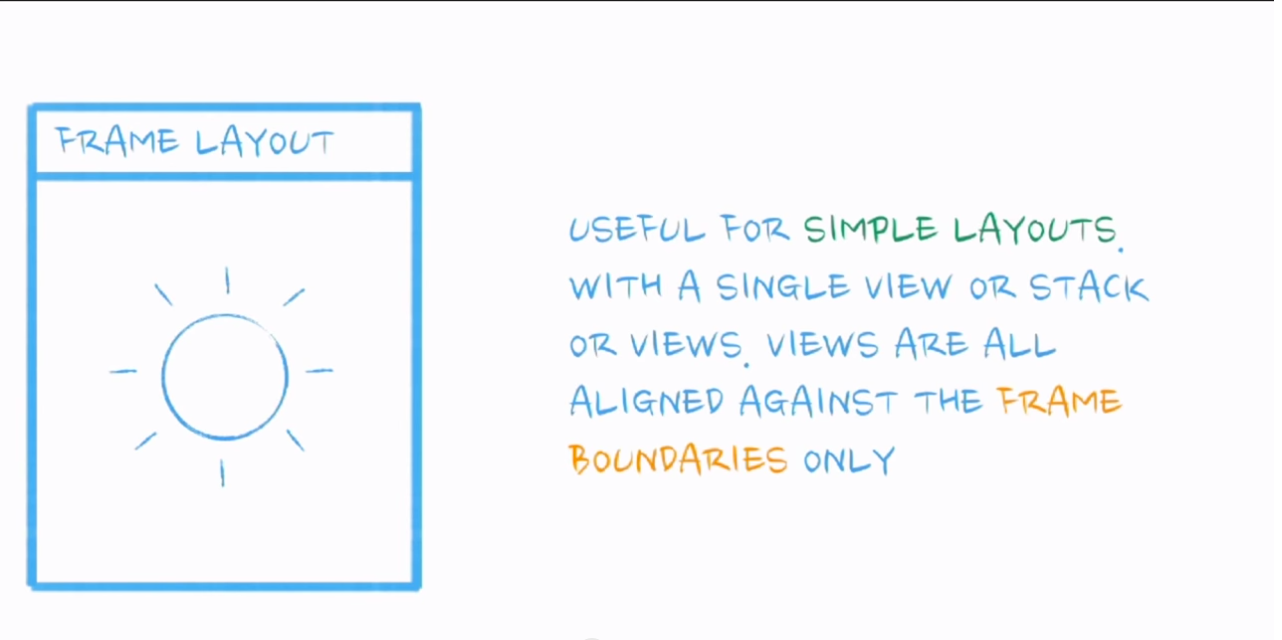 FRAME LAYOUT
USEFUL FOR SIMPLE LAYOUTS.
WITH A SINGLE VIEW OR STACK
OR VIEWS. VIEWS ARE ALL
ALIGNED AGAINST THE FRAME
BOUNDARIES ONLY